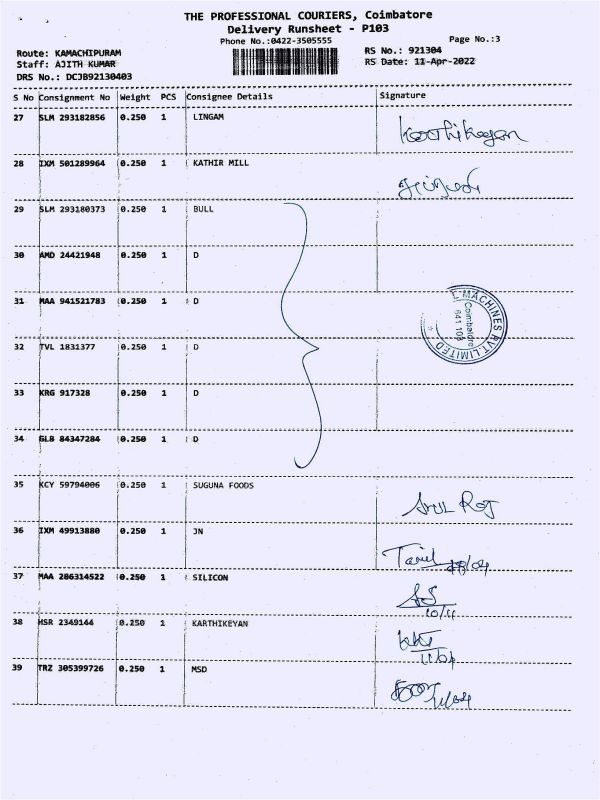 THE PROFESSIONAL COURIERS, Coimbatore
Delivery Runsheet - P103
Phone No.:0422-3505555
Page No.:3
Route: KAMACHIPURAM
RS No.: 921304
Staff: AJITH KUMAR
RS Date: 11-Apr-2022
DRS No.: DCJB92130403
S No Consignment No Weight PCS Consignee Details Signature
27 SLM 293182856 0.250 1 LINGAM Karthikeyan
28 IXM 501289964 0.250 1 KATHIR MILL
29 SLM 293180373 0.250 1 BULL
30 AMD 24421948 0.250 1 D
31 MAA 941521783 0.250 1 D
L MACHINES PVT.LIMITED
Coimbatore
641 103
32 TVL 1831377 0.250 1 D
33 KRG 917328 0.250 1 D
34 GLB 84347284 0.250 1 D
35 KCY 59794006 0.250 1 SUGUNA FOODS Arul Roj
36 IXM 49913880 0.250 1 JN Tamil
37 MAA 286314522 0.250 1 SILICON
10/4
38 HSR 2349144 0.250 1 KARTHIKEYAN
11/04
39 TRZ 305399726 0.250 1 MSD
11/04